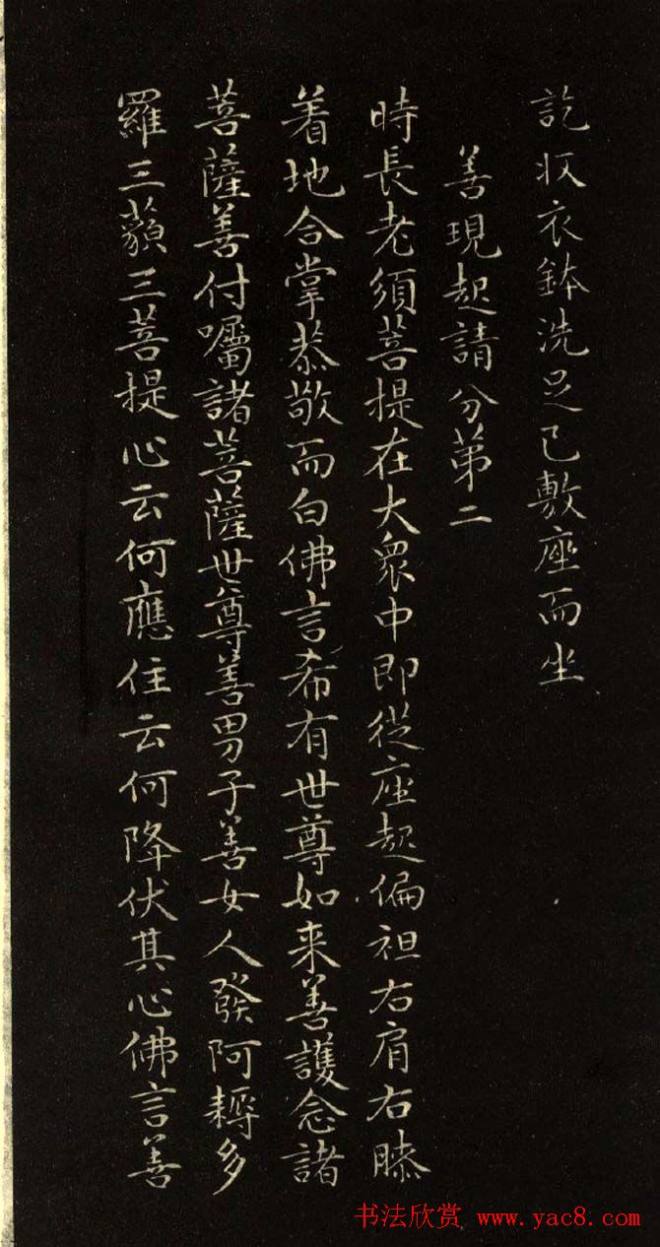 訖収衣鉢洗足已敷座而坐
善現起請分第二
時長老須菩提在大眾中即從座起偏袒右肩右膝
着地合掌恭敬而白佛言希有世尊如来善護念諸
菩薩善付囑諸菩薩世尊善男子善女人發阿耨多
羅三藐三菩提心云何應住云何降伏其心佛言善
书法欣赏 www.yac8.com